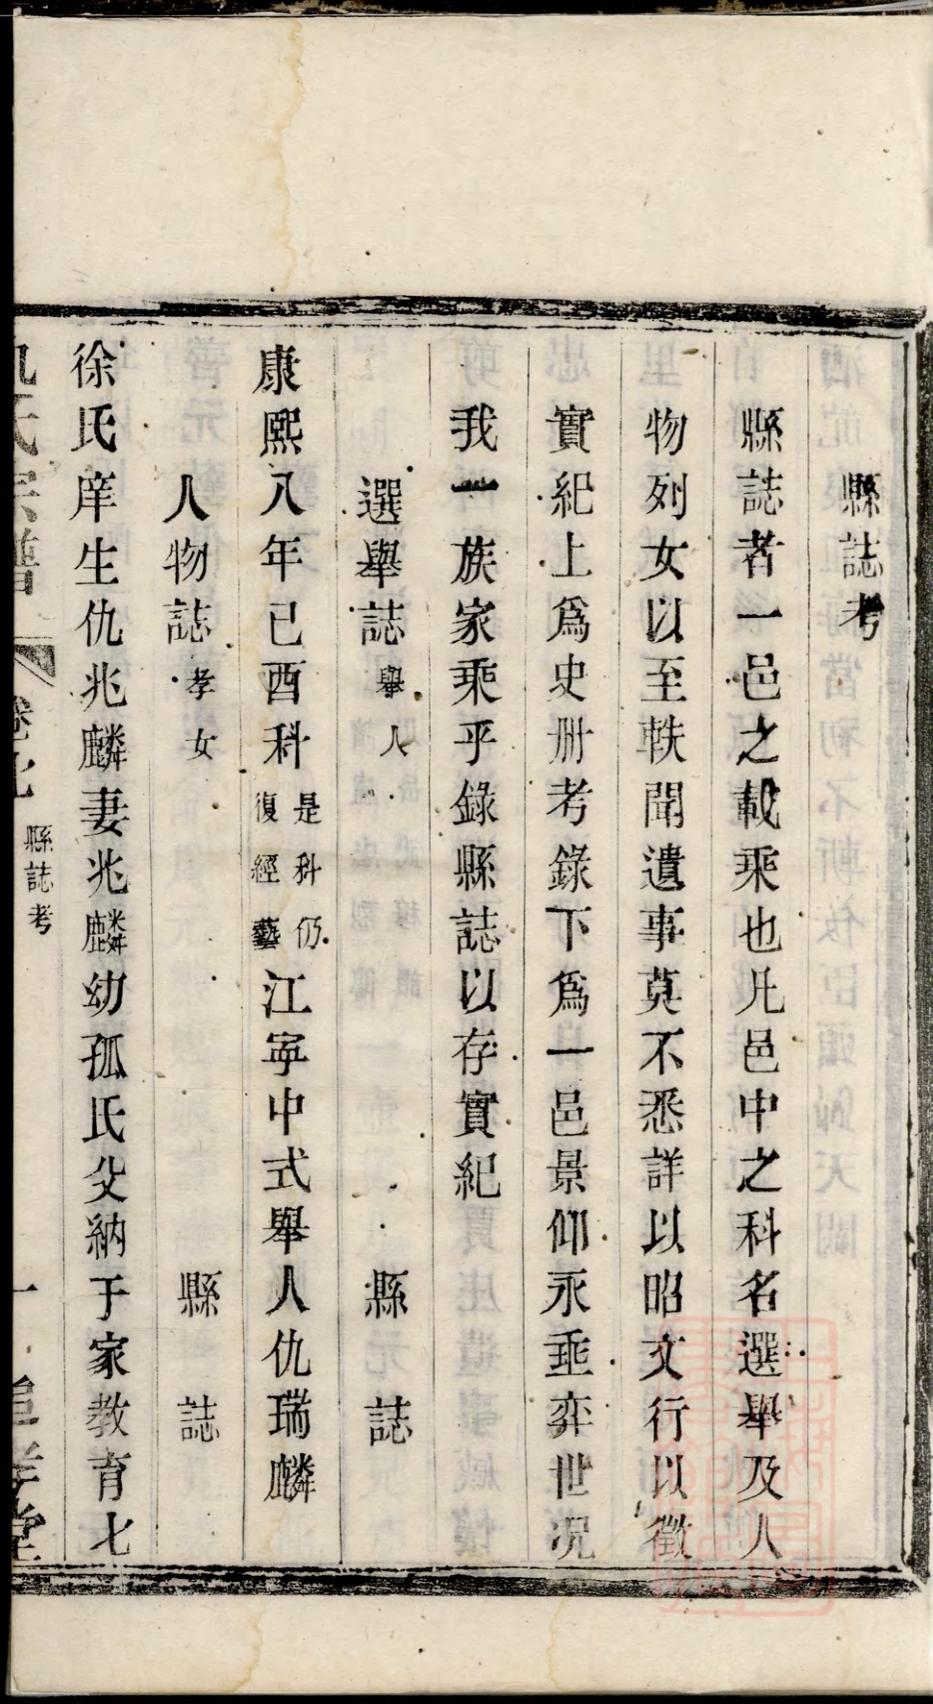 縣誌考
縣誌者一邑之載乘也凡邑中之科名選舉及人
物列女以至軼聞遺事莫不悉詳以昭文行以徵
實紀上爲史册考錄下爲一邑景仰永垂弈世况
我一族家乘乎錄縣誌以存實紀
選舉誌 舉人 縣誌
康熙八年已酉科 是科仍復經藝 江寕中式舉人仇瑞麟
人物誌 孝女 縣誌
徐氏庠生仇兆麟妻兆麟幼孤氏父納于家教育七
仇氏宗譜 卷七 縣誌考 一 追孝堂